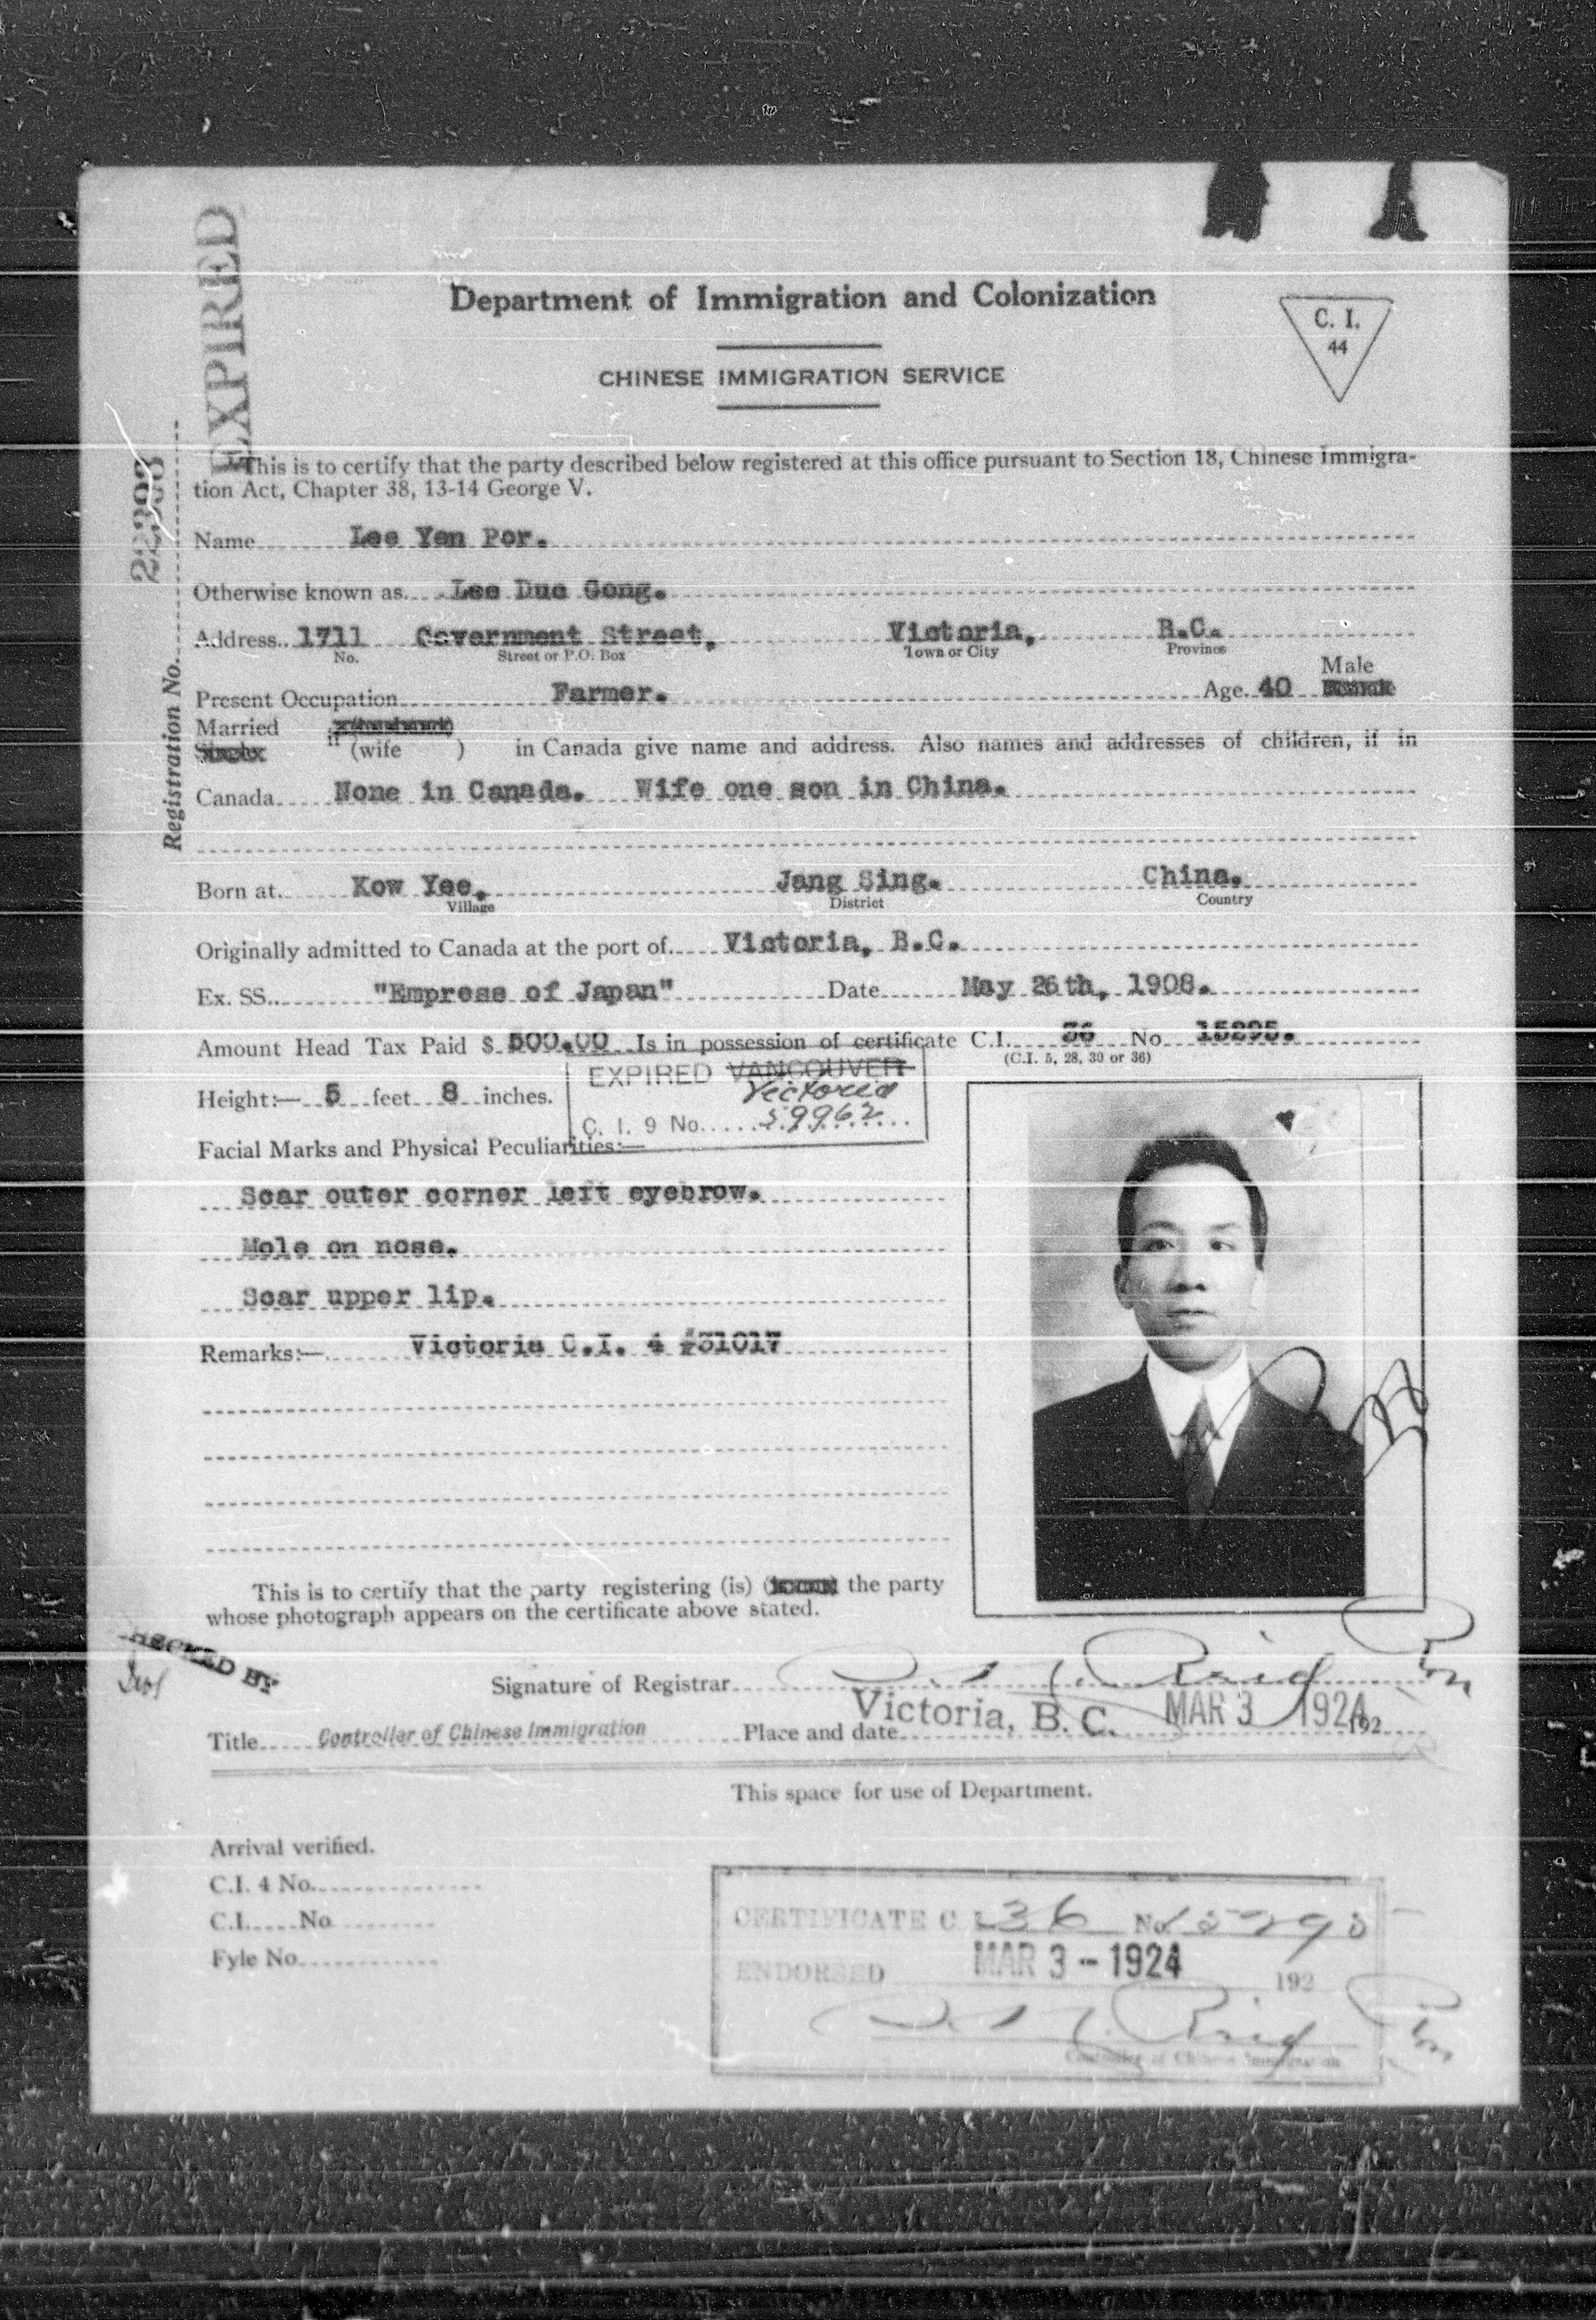 EXPIRED
Department of Immigration and Colonization
C. I.
44
CHINESE IMMIGRATION SERVICE
Registration No.
This is to certify that the party described below registered at this office pursuant to Section 18, Chinese Immigra-
tion Act, Chapter 38, 13-14 George V.
Name Lee Yen Por.
Otherwise known as Lee Duc Gong.
Address 1711 Government Street, Victoria, B.C.
No. Street or P.O. Box Town or City Province
Male
Present Occupation Farmer. Age 40
Married
if (wife ) in Canada give name and address. Also names and addresses of children, if in
Canada None in Canada. Wife one son in China.
Born at Kow Yee, Jang Sing. China.
Village District Country
Originally admitted to Canada at the port of Victoria, B.C.
Ex. SS. "Empress of Japan" Date May 26th, 1908.
Amount Head Tax Paid $ 500.00 Is in possession of certificate C.I. 36 No 15295.
(C.I. 5, 28, 30 or 36)
EXPIRED VANCOUVER
Victoria
C. I. 9 No. 59962
Height:— 5 feet 8 inches.
Facial Marks and Physical Peculiarities:—
Scar outer corner left eyebrow.
Mole on nose.
Scar upper lip.
Remarks:— Victoria C.I. 4 #31017
This is to certify that the party registering (is) the party
whose photograph appears on the certificate above stated.
CHECKED BY
Signature of Registrar Reid
Title Controller of Chinese Immigration Place and date Victoria, B. C. MAR 3 1924 192
This space for use of Department.
Arrival verified.
C.I. 4 No.
C.I. No
Fyle No.
CERTIFICATE C. I. 36 No. 15295
ENDORSED MAR 3 - 1924 192
Reid
Controller of Chinese Immigration